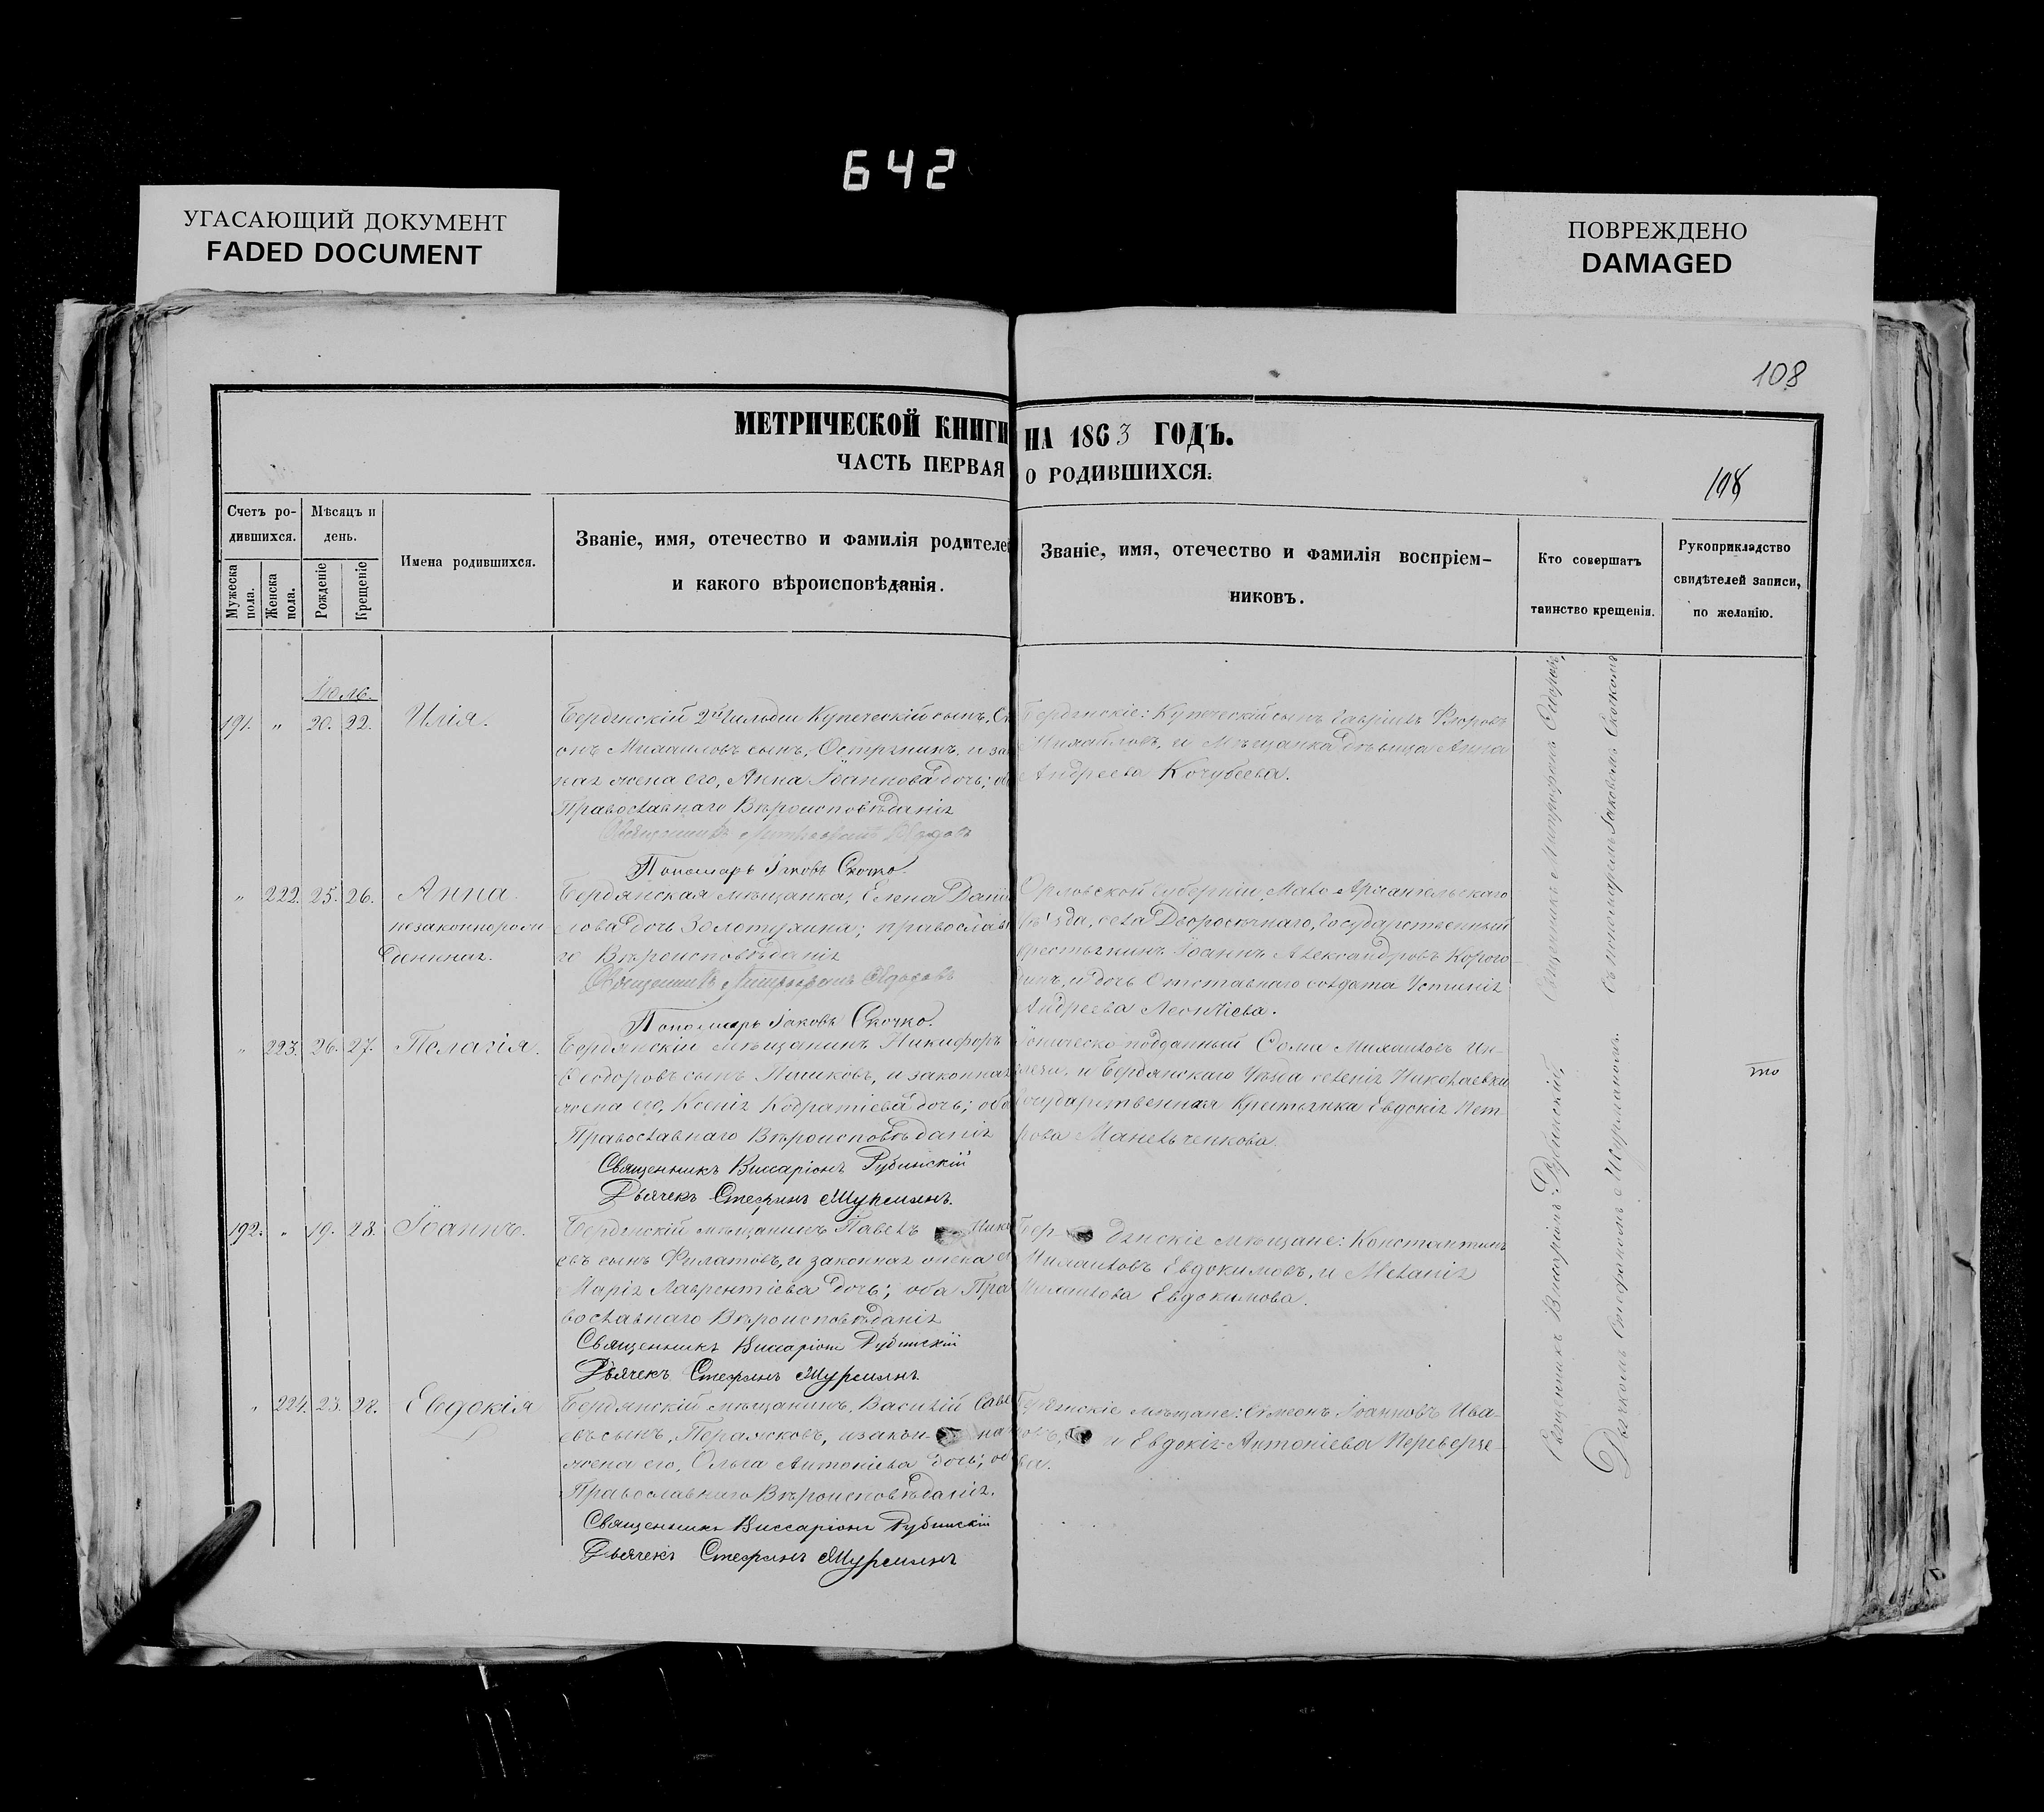 642
УГАСАЮЩИЙ ДОКУМЕНТ
FADED DOCUMENT
ПОВРЕЖДЕНО
DAMAGED
108
МЕТРИЧЕСКОЙ КНИГИ НА 1863 ГОДЪ.
ЧАСТЬ ПЕРВАЯ О РОДИВШИХСЯ.
108
Счетъ ро-
дившихся.
Мужеска
пола.
Женска
пола.
Мѣсяцъ и
день.
Рожденіе
Крещеніе
Имена родившихся.
Званіе, имя, отечество и фамилія родителей
и какого вѣроисповѣданія.
Званіе, имя, отечество и фамилія воспріем-
никовъ.
Кто совершатъ
таинство крещенія.
Рукоприкладство
свидѣтелей записи,
по желанію.
Іюль.
191. " 20. 22. Илія.
Бердянскій 2й Гильдіи Купеческій сынъ,
онъ Михаиловъ сынъ, и за
ная жена его, Анна Іоаннова дочь; об
Православнаго Вѣроисповѣданія
Священникъ Митрофанъ
Пономарь Іаковъ Скочко.
Бердянскіе: Купеческій сынъ Гавріилъ
Михайловъ, и Мѣщанка дѣвица Анна
Андреева Кочубеева.
" 222. 25. 26. Анна
незаконнорож
денная.
Бердянская мѣщанка, Елена Даніи
лова дочь Золотухина; православна
го Вѣроисповѣданія
Священникъ Митрофанъ
Пономарь Іаковъ Скочко.
Орловской Губерніи, Мало Архангельскаго
уѣзда, села Государственный
крестьянинъ Іоаннъ Александровъ
и дочь Отставнаго солдата Устинія
Андреева Леонтіева.
" 223. 26. 27. Пелагія.
Бердянскій Мѣщанинъ Никифоръ
Ѳеодоровъ сынъ и законная
жена его, Ксенія Кодратіева дочь; оба
Православнаго Вѣроисповѣданія
Священникъ Виссаріонъ Рубинскій
Дьячекъ Стефанъ
подданный Михаиловъ
и Бердянскаго Уѣзда селенія Николаевки
Государственная Крестьянка Евдокія Пет
рова
192. " 19. 28. Іоаннъ.
Бердянскій мѣщанинъ Павелъ
евъ сынъ Филатовъ, и законная жена е
Марія Лаврентіева дочь; оба Пра
вославнаго Вѣроисповѣданія
Священникъ Виссаріонъ Рубинскій
Дьячекъ Стефанъ
Бер- дянскіе мѣщане: Константинъ
Михаиловъ Евдокимовъ, и Меланія
Михаилова Евдокимова.
" 224. 23. 28. Евдокія
Бердянскій мѣщанинъ, Василій Саве
евъ сынъ, и закон- на
жена его, Ольга Антоніева дочь; об
Православнаго Вѣроисповѣданія.
Священникъ Виссаріонъ Рубинскій
Дьячекъ Стефанъ
мѣщане: Симеонъ Іоанновъ Ива-
и Евдокія Антоніева Переверзе-
ва.
Священникъ Митрофанъ
съ пономаремъ Іаковомъ Скочкомъ
Священникъ Виссаріонъ Рубинскій,
Дьячкомъ Стефаномъ